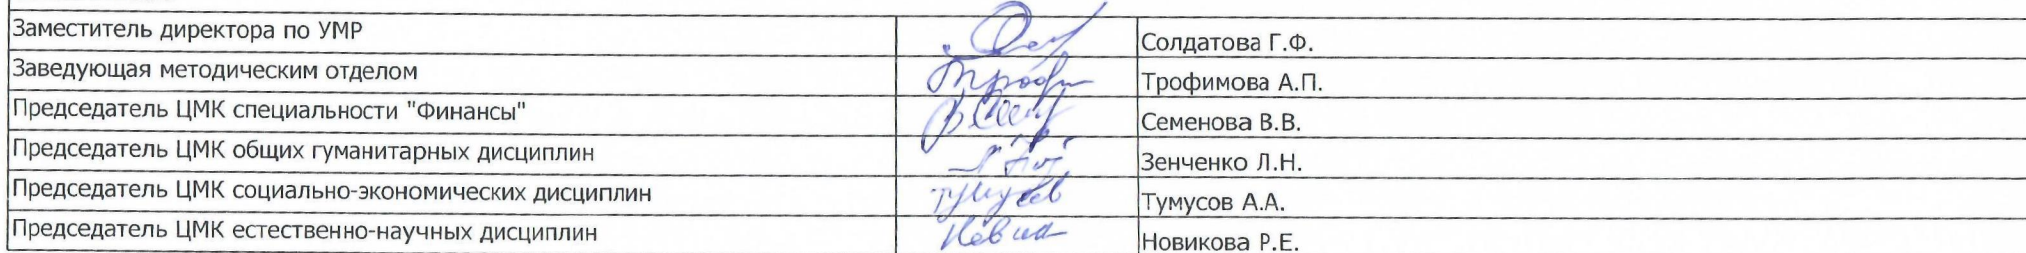 Заместитель директора по УМР Солдатова Г.Ф.
Заведующая методическим отделом Трофимова А.П.
Председатель ЦМК специальности "Финансы" Семенова В.В.
Председатель ЦМК общих гуманитарных дисциплин Зенченко Л.Н.
Председатель ЦМК социально-экономических дисциплин Тумусов А.А.
Председатель ЦМК естественно-научных дисциплин Новикова Р.Е.